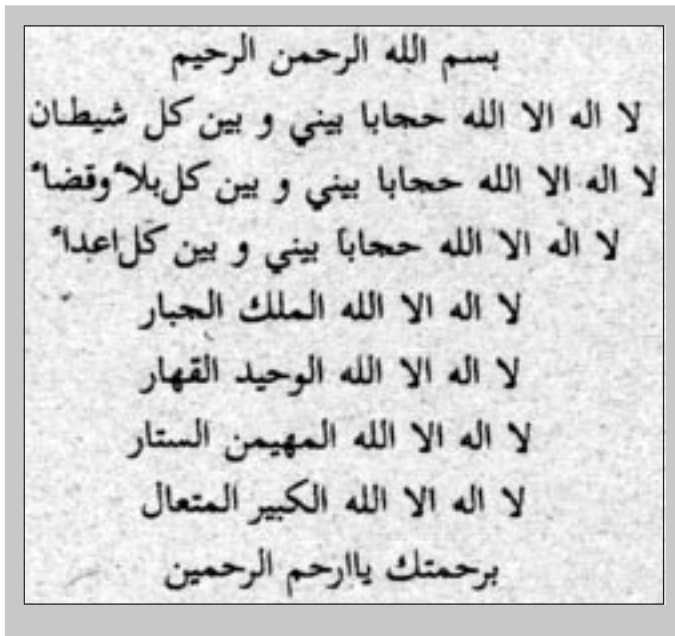 بسم الله الرحمن الرحيم
لا اله الا الله حجابا بيني و بين كل شيطان
لا اله الا الله حجابا بيني و بين كل بلاٴ وقضاٴ
لا اله الا الله حجابا بيني و بين كل اعداٴ
لا اله الا الله الملك الجبار
لا اله الا الله الوحيد القهار
لا اله الا الله المهيمن الستار
لا اله الا الله الكبير المتعال
برحمتك ياارحم الرحمين